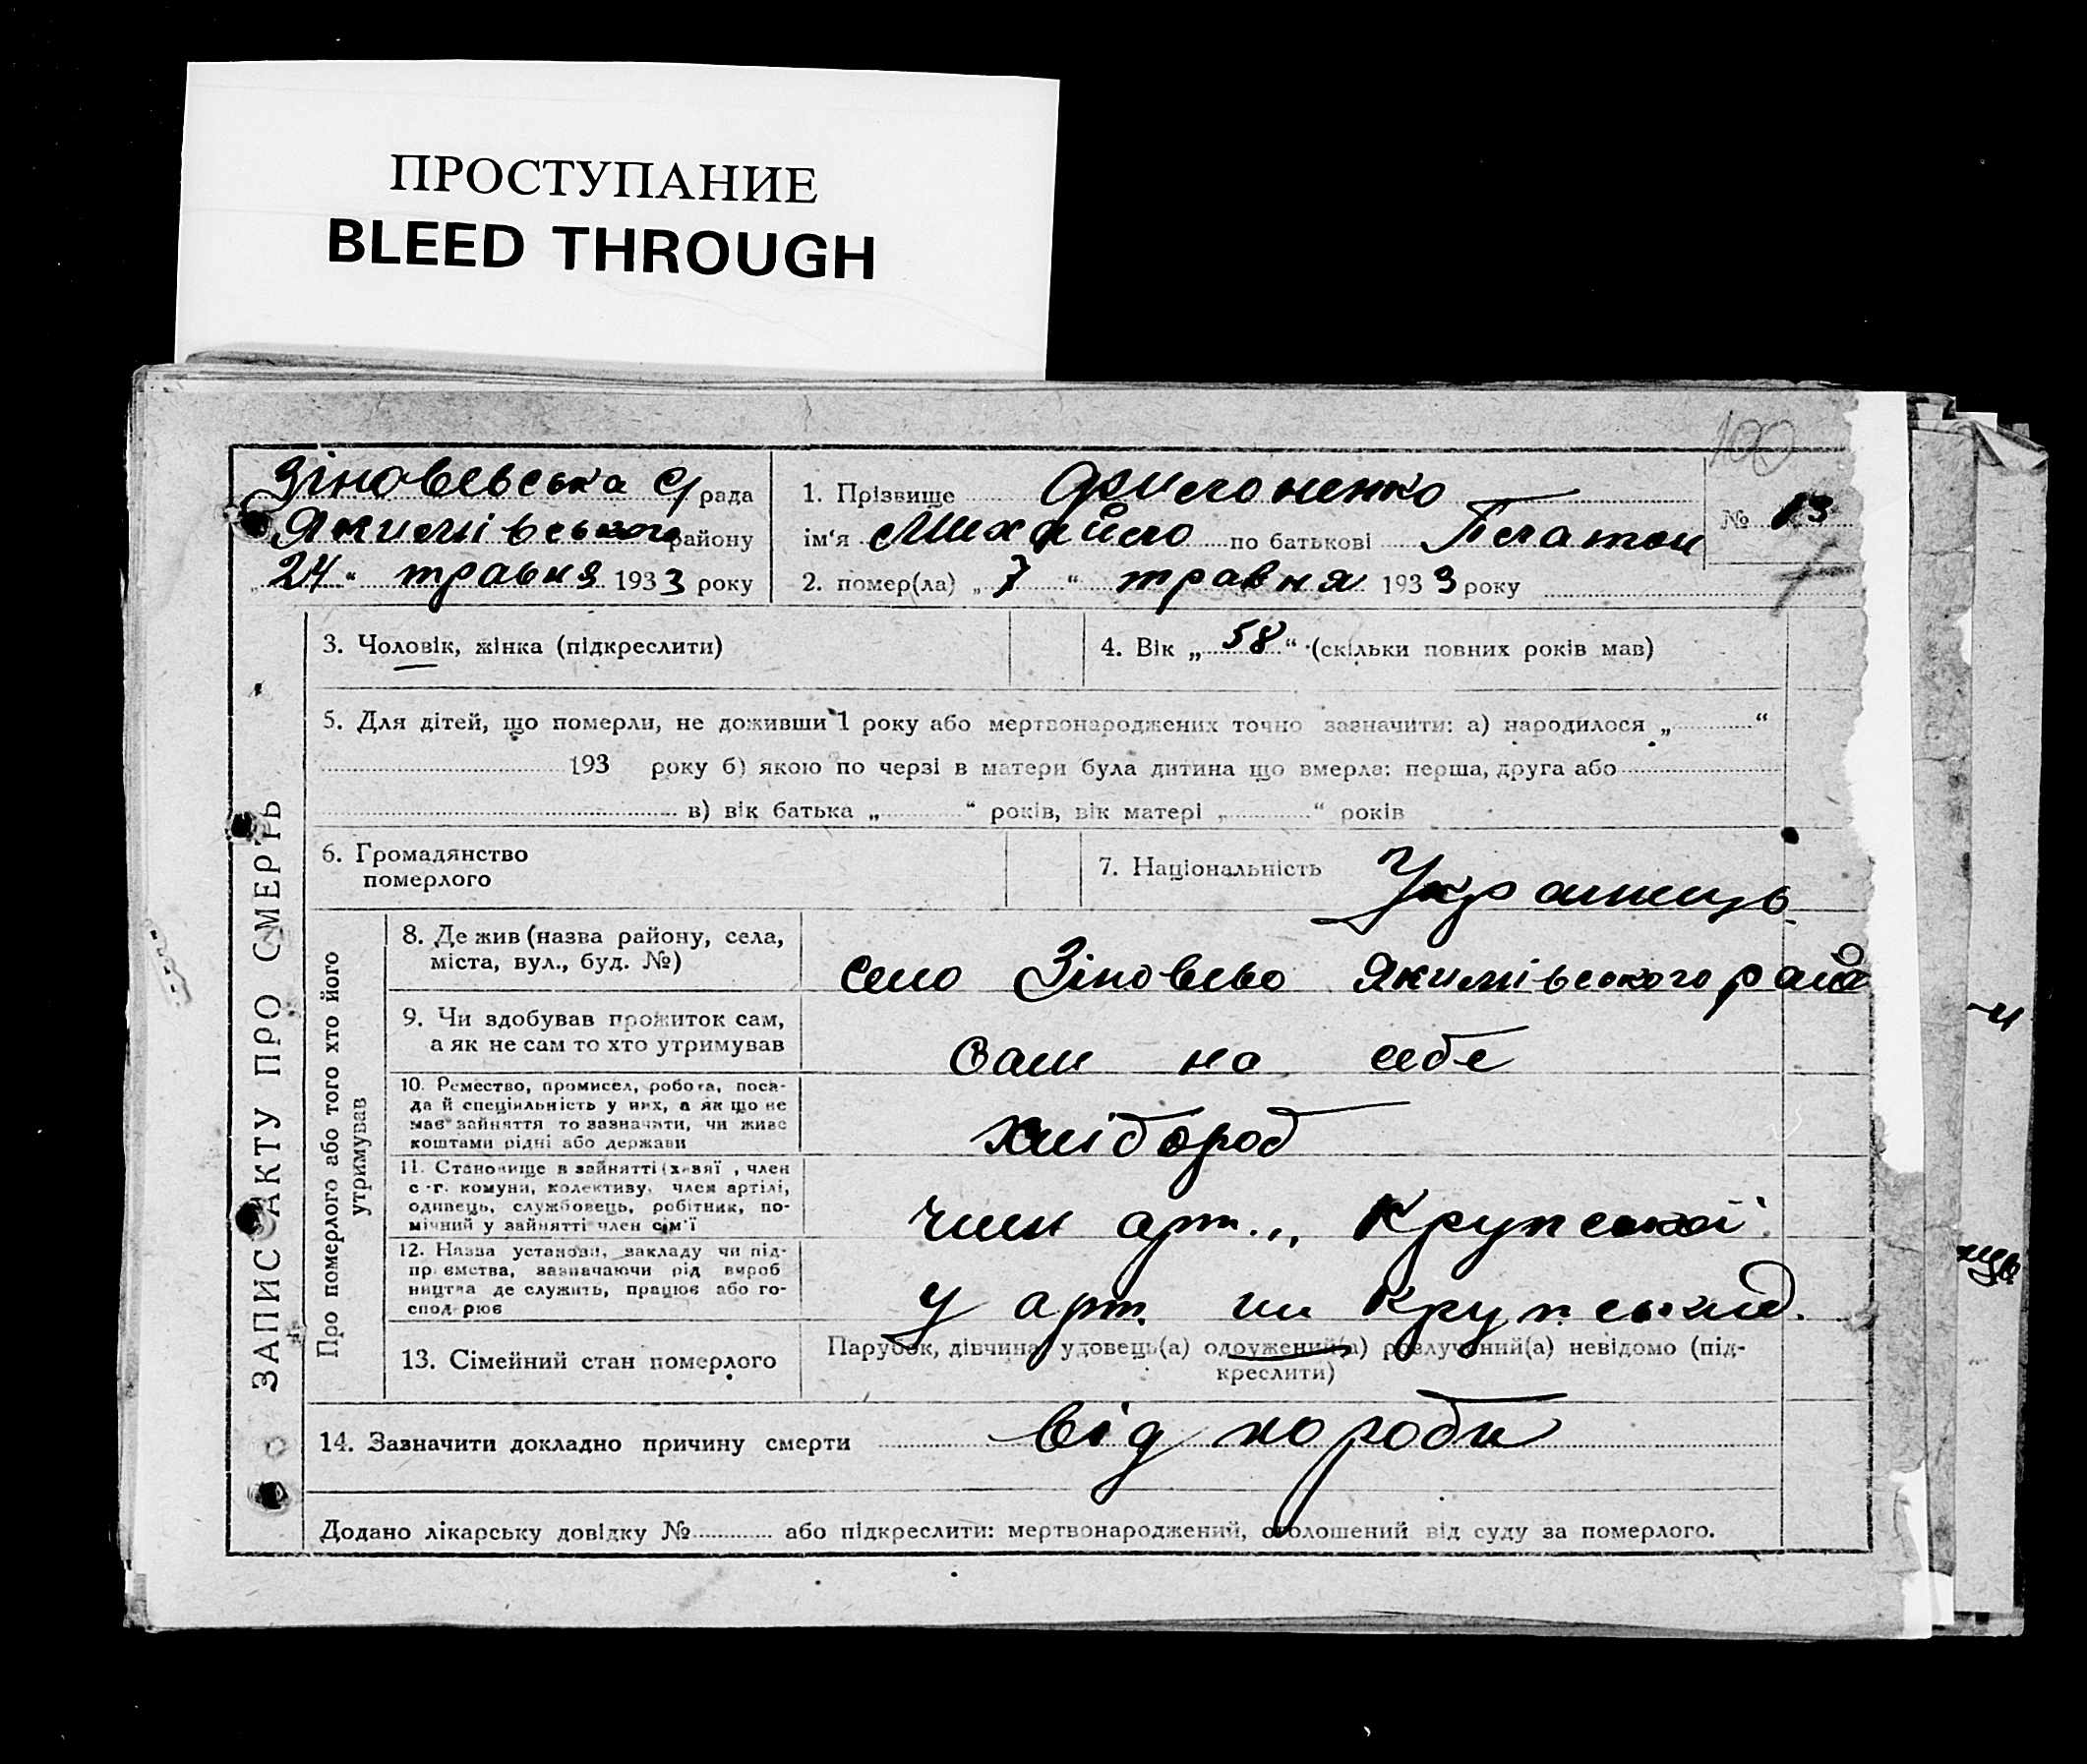 ПРОСТУПАНИЕ
BLEED THROUGH
100
Зіновєвська с/рада
Якимівського району
„24“ травня 1933 року
1. Прізвище Филоненко
ім'я Михайло по батькові Платон
№ 13
2. помер(ла) „7“ травня 1933 року
ЗАПИС АКТУ ПРО СМЕРТЬ
3. Чоловік, жінка (підкреслити)
4. Вік „58“ (скільки повних років мав)
5. Для дітей, що померли, не доживши 1 року або мертвонароджених точно зазначити: а) народилося „ “
193 року б) якою по черзі в матери була дитина що вмерла: перша, друга або
в) вік батька „ “ років, вік матері „ “ років
6. Громадянство
померлого
7. Національність Українець
Про померлого або того хто його
утримував
8. Де жив (назва району, села,
міста, вул., буд. №)
село Зіновєво Якимівського рай
9. Чи здобував прожиток сам,
а як не сам то хто утримував
Сам на себе
10. Ремество, промисел, робота, поса-
да й спеціяльність у них, а як що не
має зайняття то зазначити, чи живе
коштами рідні або держави
хлібороб
11. Становище в зайнятті (хазяї, член
с.-г. комуни, колективу, член артілі,
одивець, службовець, робітник, по-
мічний у зайнятті член сім'ї
член арт. „ Крупської
12. Назва установи, закладу чи під-
приємства, зазначаючи рід вироб
ництва де служить, працює або го-
сподарює
у арт. ім Крупської
13. Сімейний стан померлого
Парубок, дівчина, удовець(а) одружений(а) розлучений(а) невідомо (під-
креслити)
14. Зазначити докладно причину смерти від хороби
Додано лікарську довідку № або підкреслити: мертвонароджений, оголошений від суду за померлого.